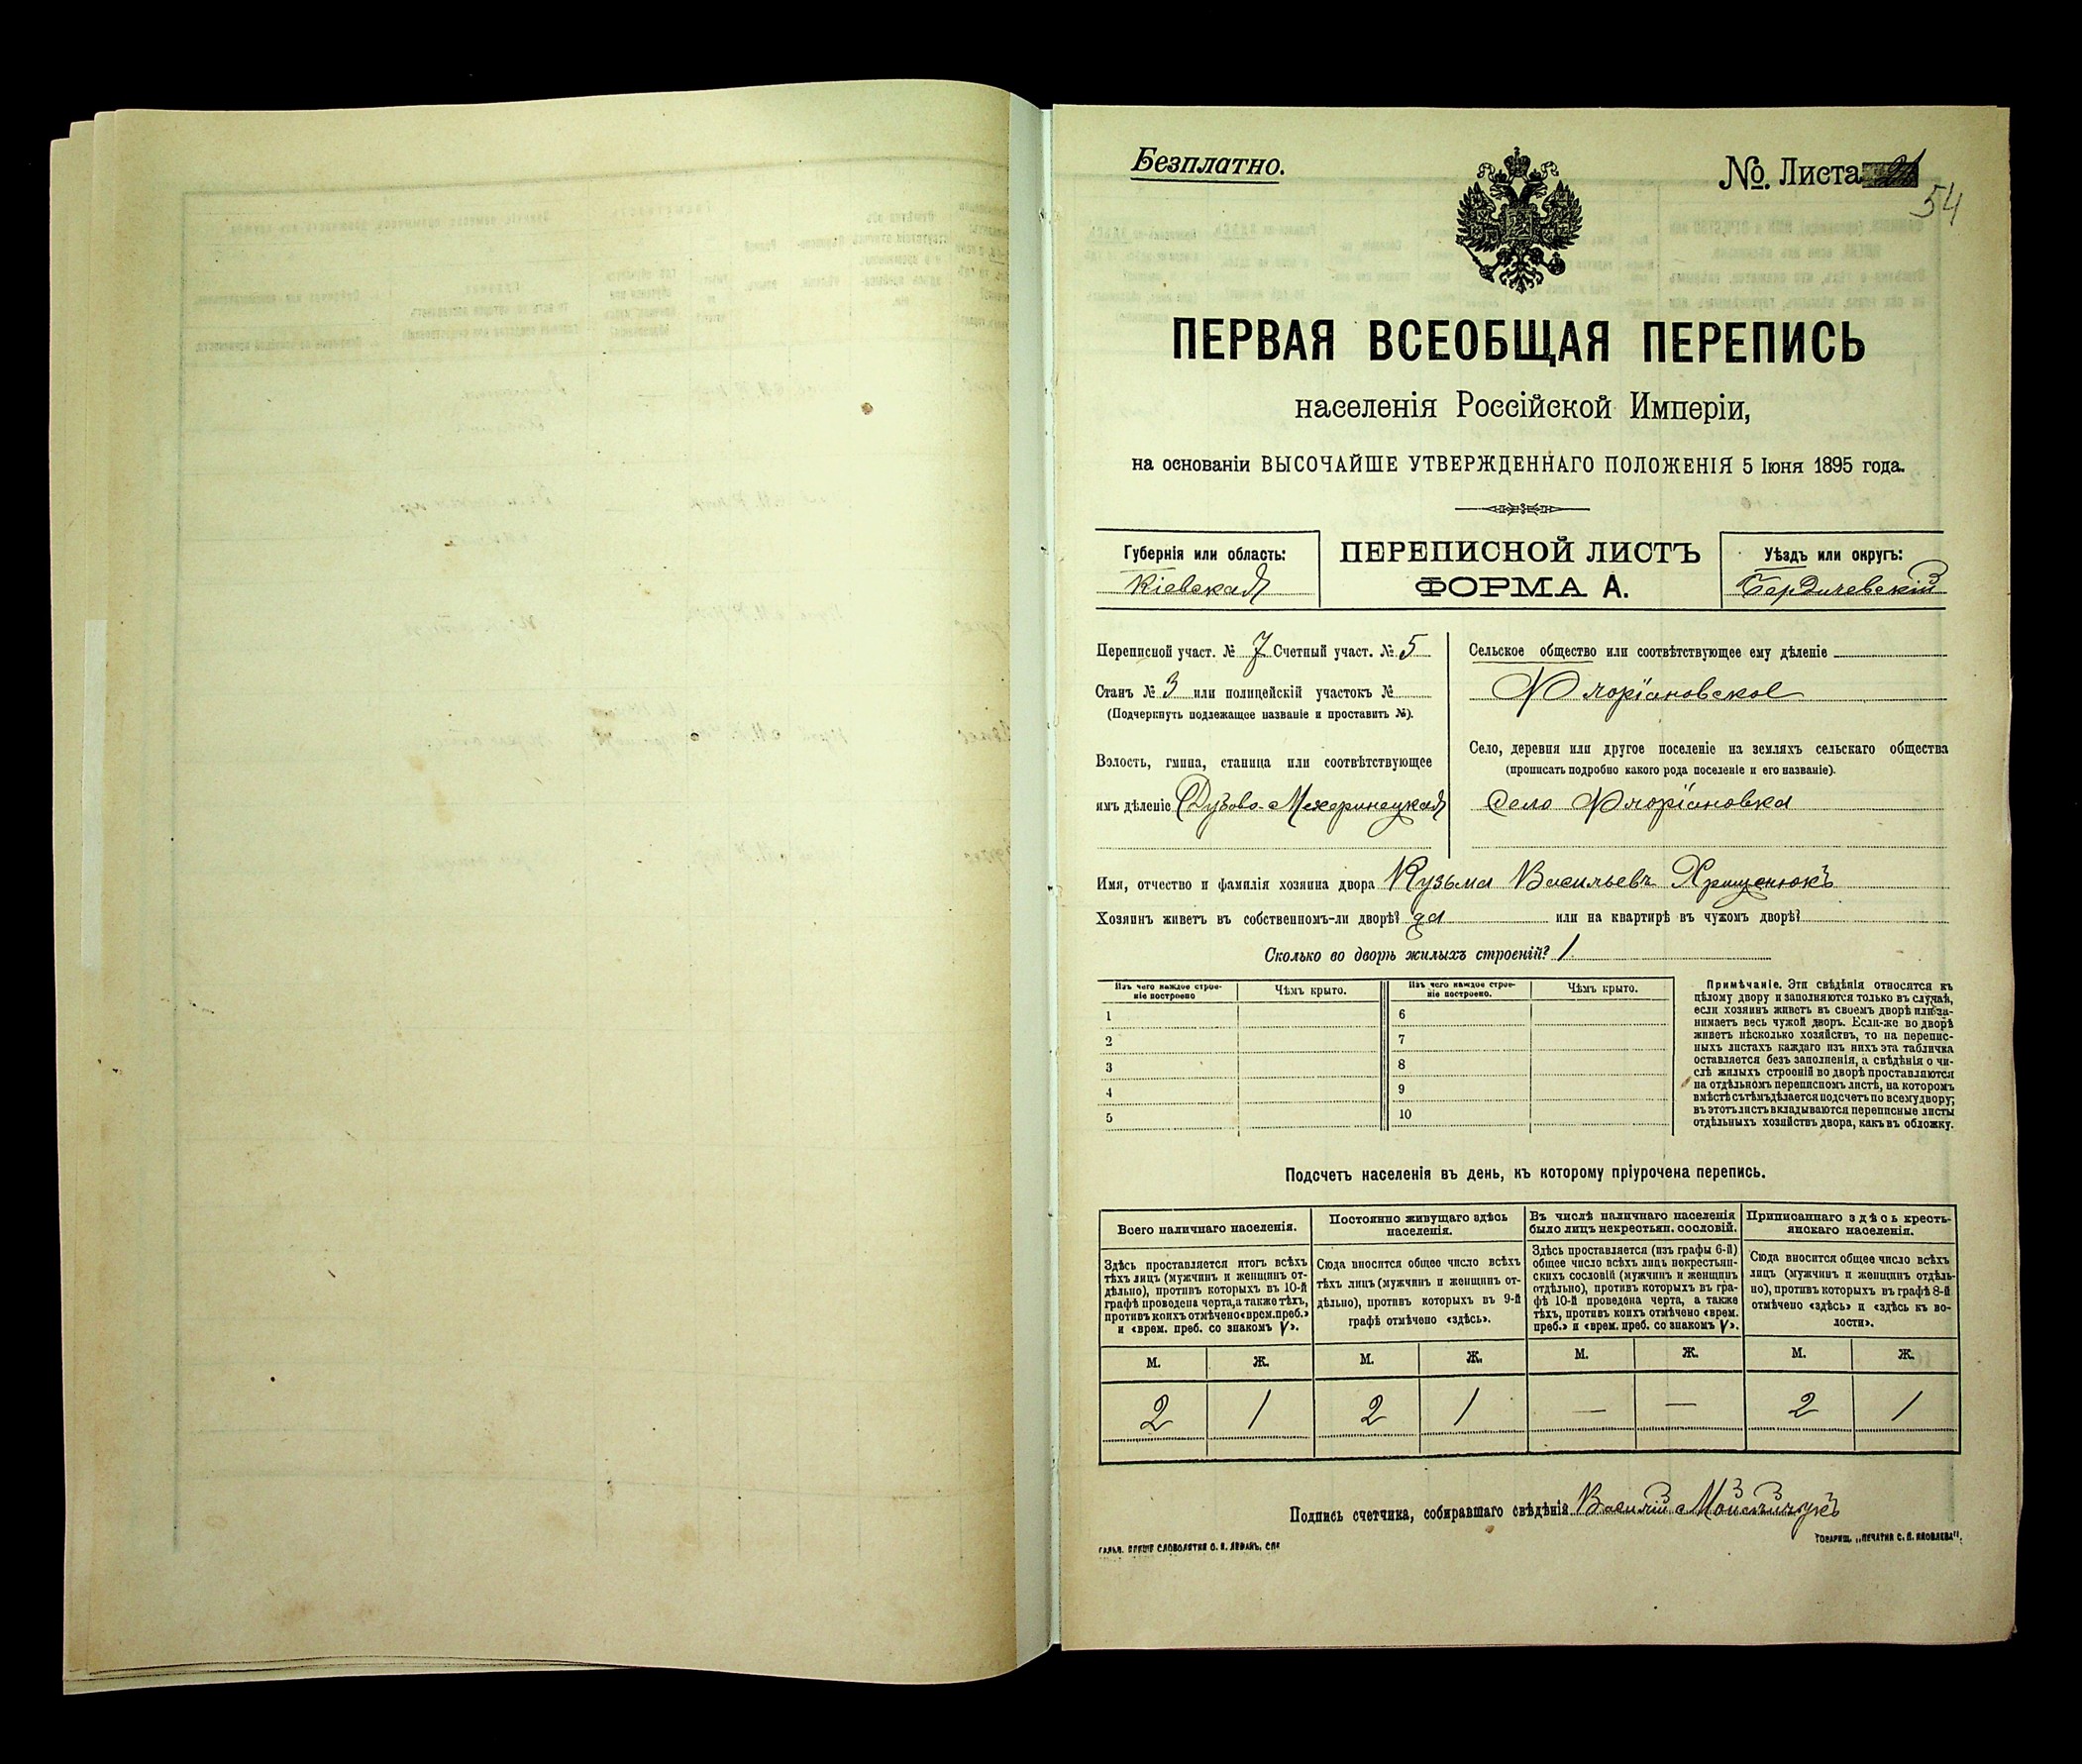 Безплатно.
№. Листа
54
ПЕРВАЯ ВСЕОБЩАЯ ПЕРЕПИСЬ
населенія Россійской Имперіи,
на основаніи ВЫСОЧАЙШЕ УТВЕРЖДЕННАГО ПОЛОЖЕНІЯ 5 Іюня 1895 года.
Губернія или область:
Кіевская
ПЕРЕПИСНОЙ ЛИСТЪ
ФОРМА А.
Уѣздъ или округъ:
Бердичевскій
Переписной участ. № 7 Счетный участ. № 5
Станъ № 3 или полицейскій участокъ №
(Подчеркнуть подлежащее названіе и проставить №).
Волость, гмина, станица или соотвѣтствующее
имъ дѣленіе Дубово-Махаринецкая
Сельское общество или соотвѣтствующее ему дѣленіе
Флоріановское
Село, деревня или другое поселеніе на земляхъ сельскаго общества
(прописать подробно какого рода поселеніе и его названіе).
Село Флоріановка
Имя, отчество и фамилія хозяина двора Кузьма Васильевъ Хрищенюкъ
Хозяинъ живетъ въ собственномъ-ли дворѣ? да или на квартирѣ въ чужомъ дворѣ?
Сколько во дворѣ жилыхъ строеній? 1
Изъ чего каждое строе-
ніе построено
Чѣмъ крыто.
1
2
3
4
5
Изъ чего каждое строе-
ніе построено.
Чѣмъ крыто.
6
7
8
9
10
Примѣчаніе. Эти свѣдѣнія относятся къ
цѣлому двору и заполняются только въ случаѣ,
если хозяинъ живетъ въ своемъ дворѣ или за-
нимаетъ весь чужой дворъ. Если-же во дворѣ
живетъ нѣсколько хозяйствъ, то на перепис-
ныхъ листахъ каждаго изъ нихъ эта табличка
оставляется безъ заполненія, а свѣдѣнія о чи-
слѣ жилыхъ строеній во дворѣ проставляются
на отдѣльномъ переписномъ листѣ, на которомъ
вмѣстѣ съ тѣмъ дѣлается подсчетъ по всему двору;
въ этотъ листъ вкладываются переписные листы
отдѣльныхъ хозяйствъ двора, какъ въ обложку.
Подсчетъ населенія въ день, къ которому пріурочена перепись.
Всего наличнаго населенія.
Здѣсь проставляется итогъ всѣхъ
тѣхъ лицъ (мужчинъ и женщинъ от-
дѣльно), противъ которыхъ въ 10-й
графѣ проведена черта, а также тѣхъ,
противъ коихъ отмѣчено «врем. преб.»
и «врем. преб. со знакомъ V».
М. Ж.
2 1
Постоянно живущаго здѣсь
населенія.
Сюда вносится общее число всѣхъ
тѣхъ лицъ (мужчинъ и женщинъ от-
дѣльно), противъ которыхъ въ 9-й
графѣ отмѣчено «здѣсь».
М. Ж.
2 1
Въ числѣ наличнаго населенія
было лицъ некрестьян. сословій.
Здѣсь проставляется (изъ графы 6-й)
общее число всѣхъ лицъ некрестьян-
скихъ сословій (мужчинъ и женщинъ
отдѣльно), противъ которыхъ въ гра-
фѣ 10-й проведена черта, а также
тѣхъ, противъ коихъ отмѣчено «врем.
преб.» и «врем. преб. со знакомъ V».
М. Ж.
— —
Приписаннаго здѣсь кресть-
янскаго населенія.
Сюда вносится общее число всѣхъ
лицъ (мужчинъ и женщинъ отдѣль-
но), противъ которыхъ въ графѣ 8-й
отмѣчено «здѣсь» и «здѣсь къ во-
лости».
М. Ж.
2 1
Подпись счетчика, собиравшаго свѣдѣнія Василій
ТОВАРИЩ. „ПЕЧАТНЯ С. П. ЯКОВЛЕВА".